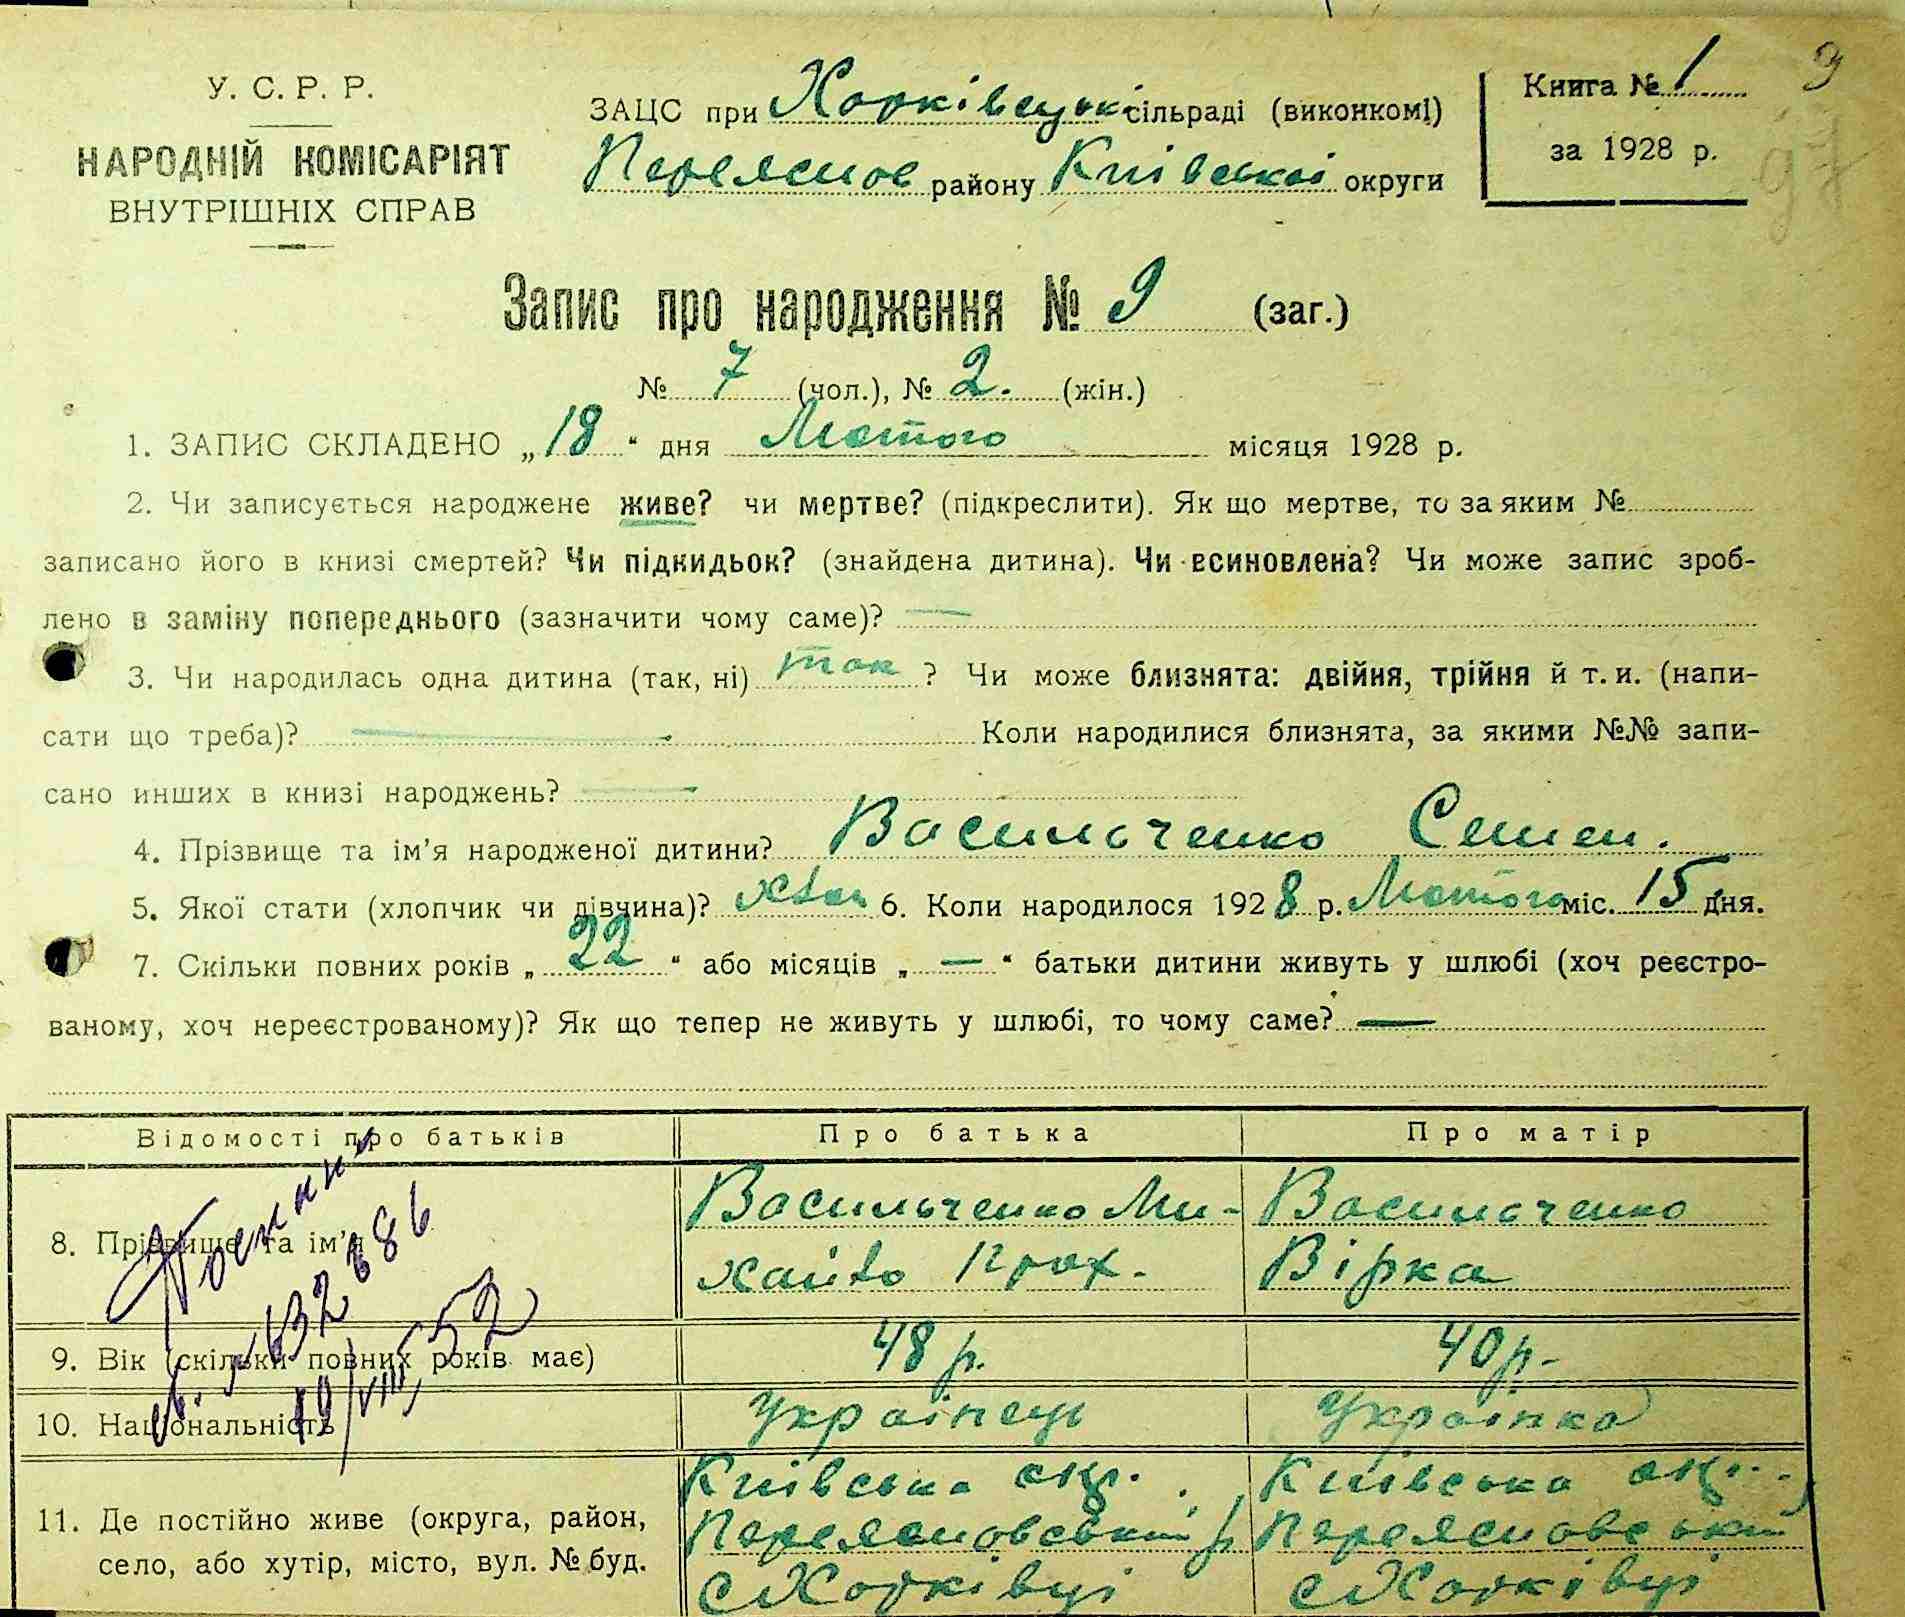 У. С. Р. Р.
НАРОДНІЙ КОМІСАРІЯТ
ВНУТРІШНІХ СПРАВ
ЗАЦС при Хоцківецькі сільраді (виконкомі)
Переяслов району Київської округи
Книга № 1
за 1928 р.
9
97
Запис про народження № 9 (заг.)
№ 7 (чол.), № 2. (жін.)
1. ЗАПИС СКЛАДЕНО „18“ дня Лютого місяця 1928 р.
2. Чи записується народжене живе? чи мертве? (підкреслити). Як що мертве, то за яким №
записано його в книзі смертей? Чи підкидьок? (знайдена дитина). Чи всиновлена? Чи може запис зроб-
лено в заміну попереднього (зазначити чому саме)? —
3. Чи народилась одна дитина (так, ні) так ? Чи може близнята: двійня, трійня й т. и. (напи-
сати що треба)? — Коли народилися близнята, за якими №№ запи-
сано инших в книзі народжень? —
4. Прізвище та ім’я народженої дитини? Васильченко Семен.
5. Якої стати (хлопчик чи дівчина)? хлоп 6. Коли народилося 1928 р. Лютого міс. 15 дня.
7. Скільки повних років „22“ або місяців „—“ батьки дитини живуть у шлюбі (хоч реєстро-
ваному, хоч нереєстрованому)? Як що тепер не живуть у шлюбі, то чому саме? —
Відомості про батьків Про батька Про матір
8. Прізвище та ім’я Васильченко Ми- Васильченко
хайло Прох. Вірка
9. Вік (скільки повних років має) 48 р. 40 р.
10. Національність Українець Українка
11. Де постійно живе (округа, район, село, або хутір, місто, вул. № буд. Київська окр. Київська окр.
Переясловський р Переясловський
с Хоцківці с Хоцківці
19/VIII 52